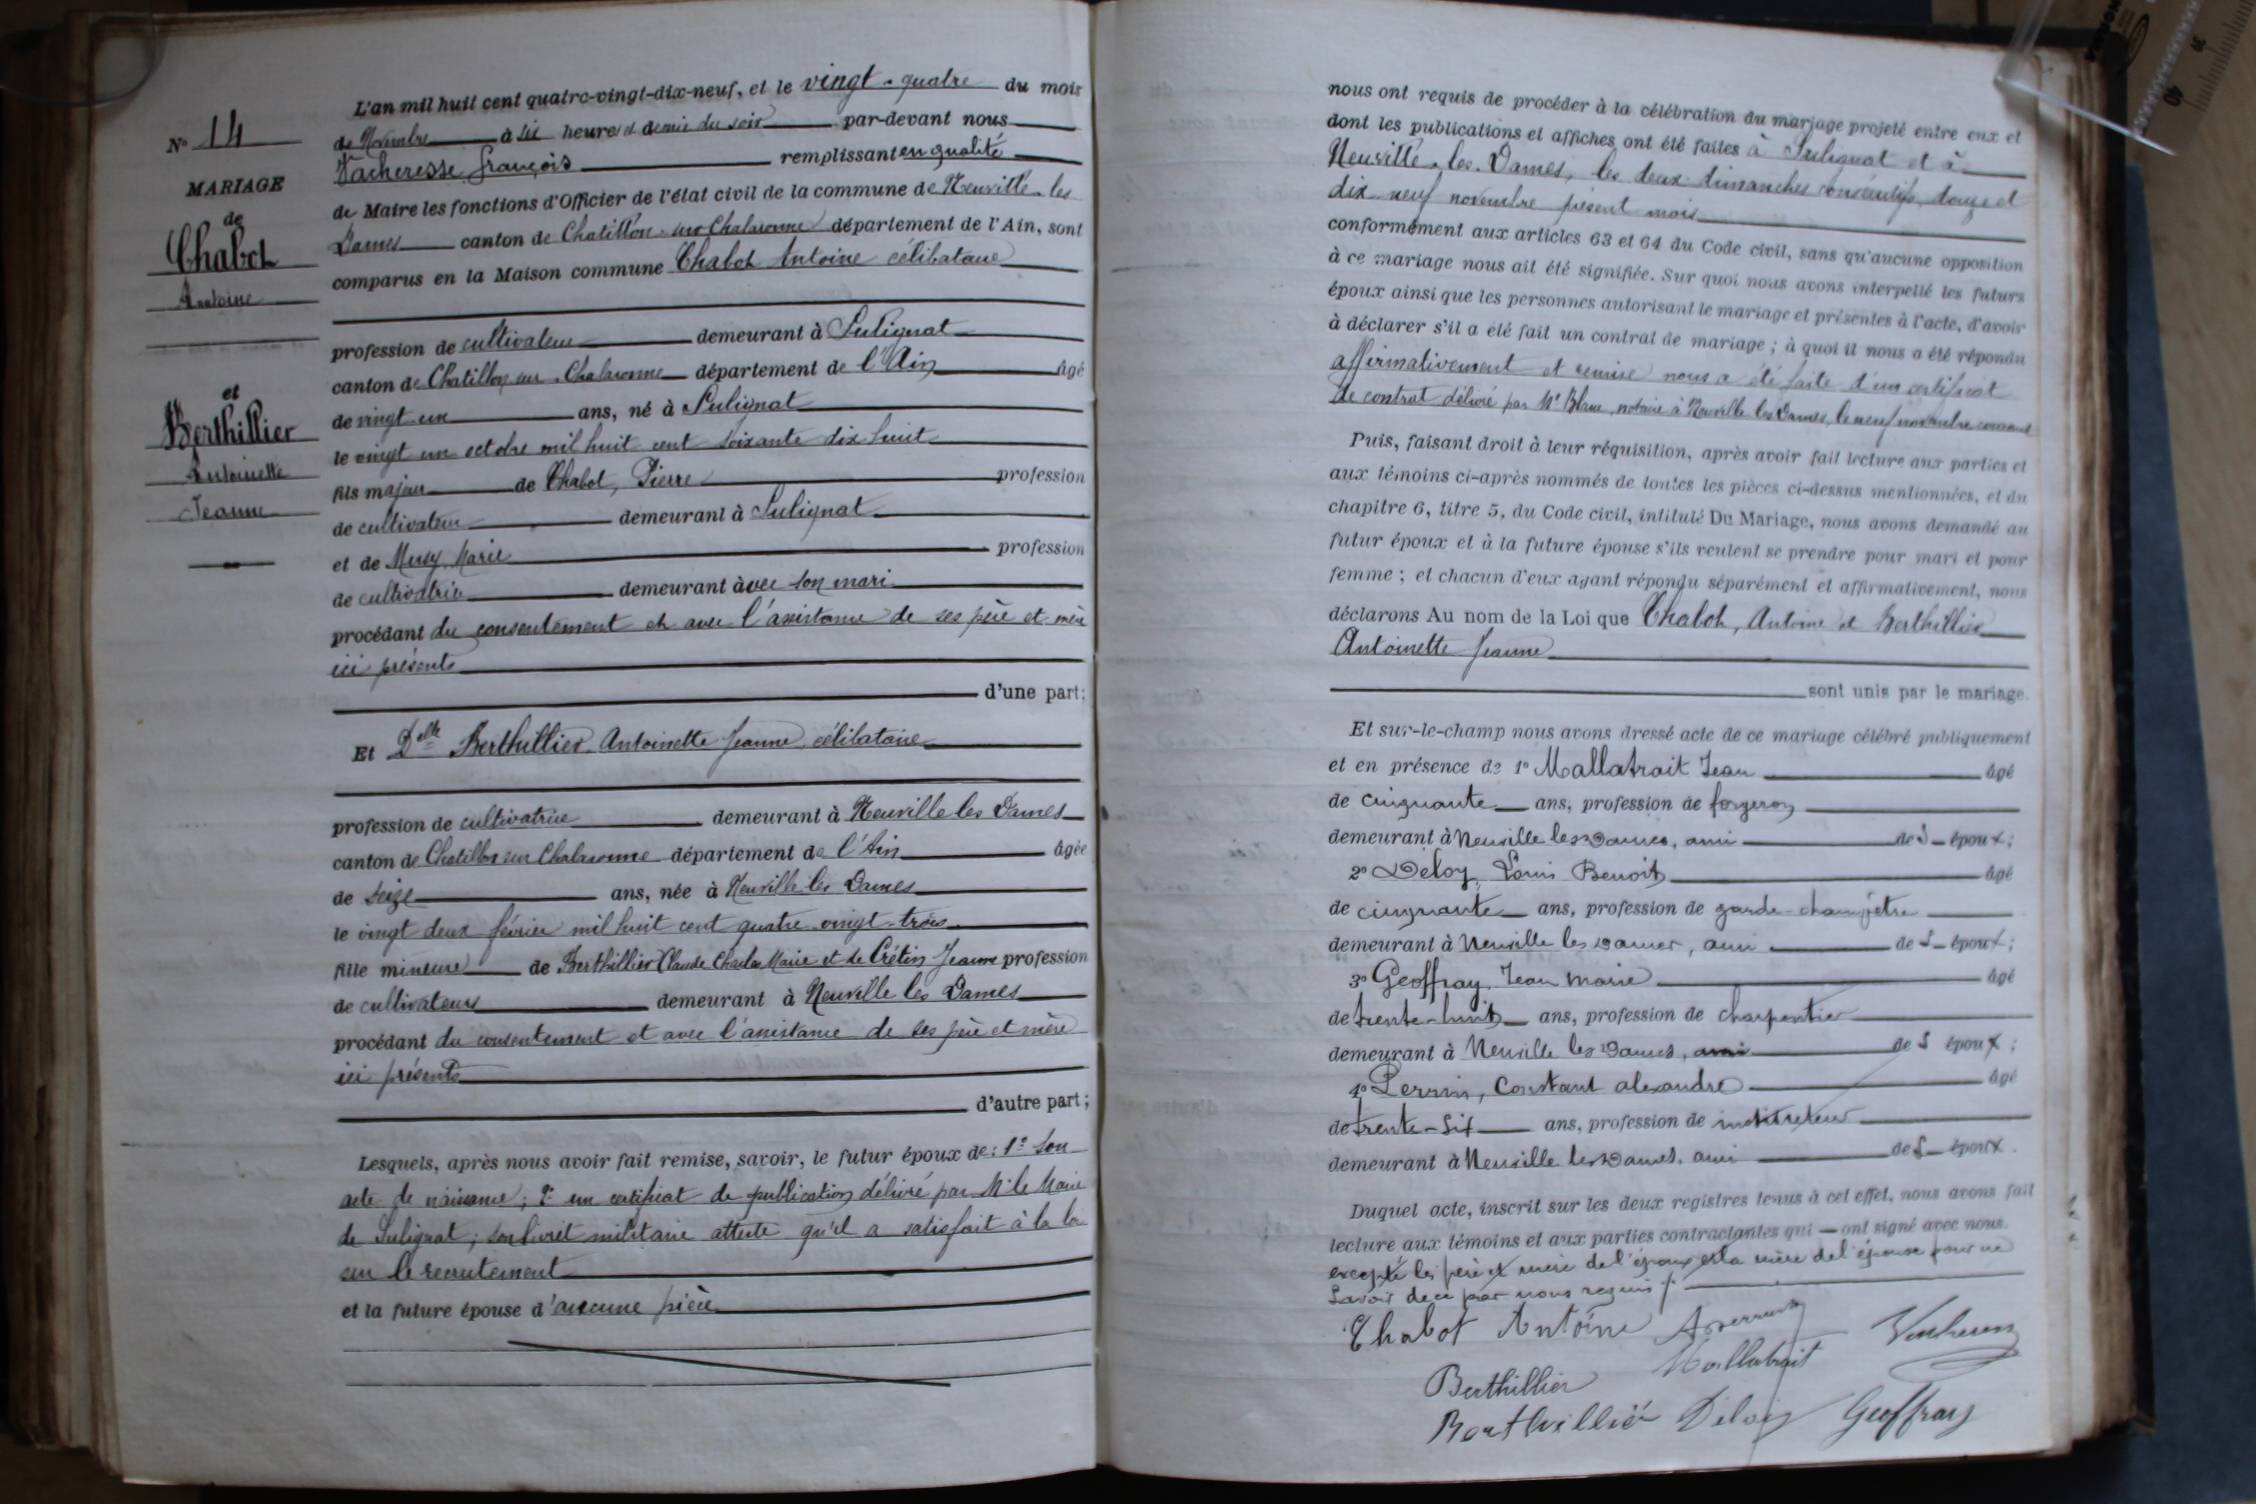 N° 14
MARIAGE
de
Chabot
Antoine
et
Berthillier
Antoinette
Jeanne
L'an mil huit cent quatre-vingt-dix-neuf, et le vingt-quatre du mois
de Novembre à six heures et demie du soir par-devant nous
Vacheresse François remplissant en qualité
de Maire les fonctions d'Officier de l'état civil de la commune de Neuville-les
Dames canton de Chatillon-sur-Chalaronne département de l'Ain, sont
comparus en la Maison commune Chabot Antoine célibataire
profession de cultivateur demeurant à Sulignat
canton de Chatillon-sur-Chalaronne département de l'Ain âgé
de vingt-un ans, né à Sulignat
le vingt un octobre mil huit cent soixante dix huit
fils majeur de Chabot, Pierre profession
de cultivateur demeurant à Sulignat
et de Musy Marie profession
de cultivatrice demeurant avec son mari
procédant du consentement et avec l'assistance de ses père et mère
ici présents
d'une part;
Et Delle Berthillier Antoinette Jeanne, célibataire
profession de cultivatrice demeurant à Neuville les Dames
canton de Chatillon sur Chalaronne département de l'Ain âgée
de seize ans, née à Neuville les Dames
le vingt deux février mil huit cent quatre-vingt-trois
fille mineure de Berthillier Claude Charles Marie et de Crétin Jeanne profession
de cultivateurs demeurant à Neuville les Dames
procédant du consentement et avec l'assistance de ses père et mère
ici présents
d'autre part;
Lesquels, après nous avoir fait remise, savoir, le futur époux de: 1° son
acte de naissance; 2° un certificat de publication délivré par Mr le Maire
de Sulignat; son livret militaire atteste qu'il a satisfait à la loi
sur le recrutement
et la future épouse d'aucune pièce
nous ont requis de procéder à la célébration du mariage projeté entre eux et
dont les publications et affiches ont été faites à Sulignat et à
Neuville-les-Dames, les deux dimanches consécutifs, douze et
dix neuf novembre présent mois
conformément aux articles 63 et 64 du Code civil, sans qu'aucune opposition
à ce mariage nous ait été signifiée. Sur quoi nous avons interpellé les futurs
époux ainsi que les personnes autorisant le mariage et présentes à l'acte, d'avoir
à déclarer s'il a été fait un contrat de mariage; à quoi il nous a été répondu
affirmativement et remise nous a été faite d'un certificat
de contrat délivré par Me Blanc, notaire à Neuville les Dames, le neuf novembre courant
Puis, faisant droit à leur réquisition, après avoir fait lecture aux parties et
aux témoins ci-après nommés de toutes les pièces ci-dessus mentionnées, et du
chapitre 6, titre 5, du Code civil, intitulé Du Mariage, nous avons demandé au
futur époux et à la future épouse s'ils veulent se prendre pour mari et pour
femme; et chacun d'eux ayant répondu séparément et affirmativement, nous
déclarons Au nom de la Loi que Chabot, Antoine et Berthillier
Antoinette Jeanne
sont unis par le mariage.
Et sur-le-champ nous avons dressé acte de ce mariage célébré publiquement
et en présence de 1° Mallatrait Jean âgé
de cinquante ans, profession de forgeron
demeurant à Neuville les Dames, ami des époux;
2° Deloy, Louis Benoit âgé
de cinquante ans, profession de garde-champêtre
demeurant à Neuville les Dames, ami des époux;
3° Geoffray, Jean Marie âgé
de trente-huit ans, profession de charpentier
demeurant à Neuville les Dames, ami des époux;
4° Perrin, Constant alexandre âgé
de trente-six ans, profession de instituteur
demeurant à Neuville les Dames, ami des époux.
Duquel acte, inscrit sur les deux registres tenus à cet effet, nous avons fait
lecture aux témoins et aux parties contractantes qui ont signé avec nous.
excepté les père et mère de l'époux et la mère de l'épouse pour ne
savoir de ce par nous requis
Chabot Antoine
Mallatrait
Berthillier
Berthillier Deloy Geoffray
40
39